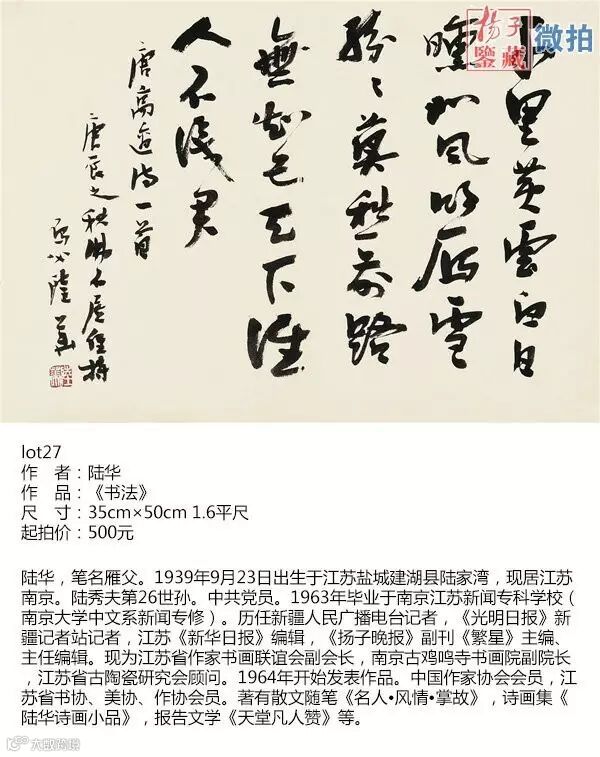 揚子
鑒藏
微拍
里黄雲白日
曛北風吹雁雪
紛〻莫愁前路
無知己天下誰
人不識君
唐高適詩一首
庚辰之秋
陸華
lot27
作 者：陆华
作 品：《书法》
尺 寸：35cm×50cm 1.6平尺
起拍价：500元
陆华，笔名雁父。1939年9月23日出生于江苏盐城建湖县陆家湾，现居江苏
南京。陆秀夫第26世孙。中共党员。1963年毕业于南京江苏新闻专科学校（
南京大学中文系新闻专修）。历任新疆人民广播电台记者，《光明日报》新
疆记者站记者，江苏《新华日报》编辑，《扬子晚报》副刊《繁星》主编、
主任编辑。现为江苏省作家书画联谊会副会长，南京古鸡鸣寺书画院副院长
，江苏省古陶瓷研究会顾问。1964年开始发表作品。中国作家协会会员，江
苏省书协、美协、作协会员。著有散文随笔《名人•风情•掌故》，诗画集《
陆华诗画小品》，报告文学《天堂凡人赞》等。